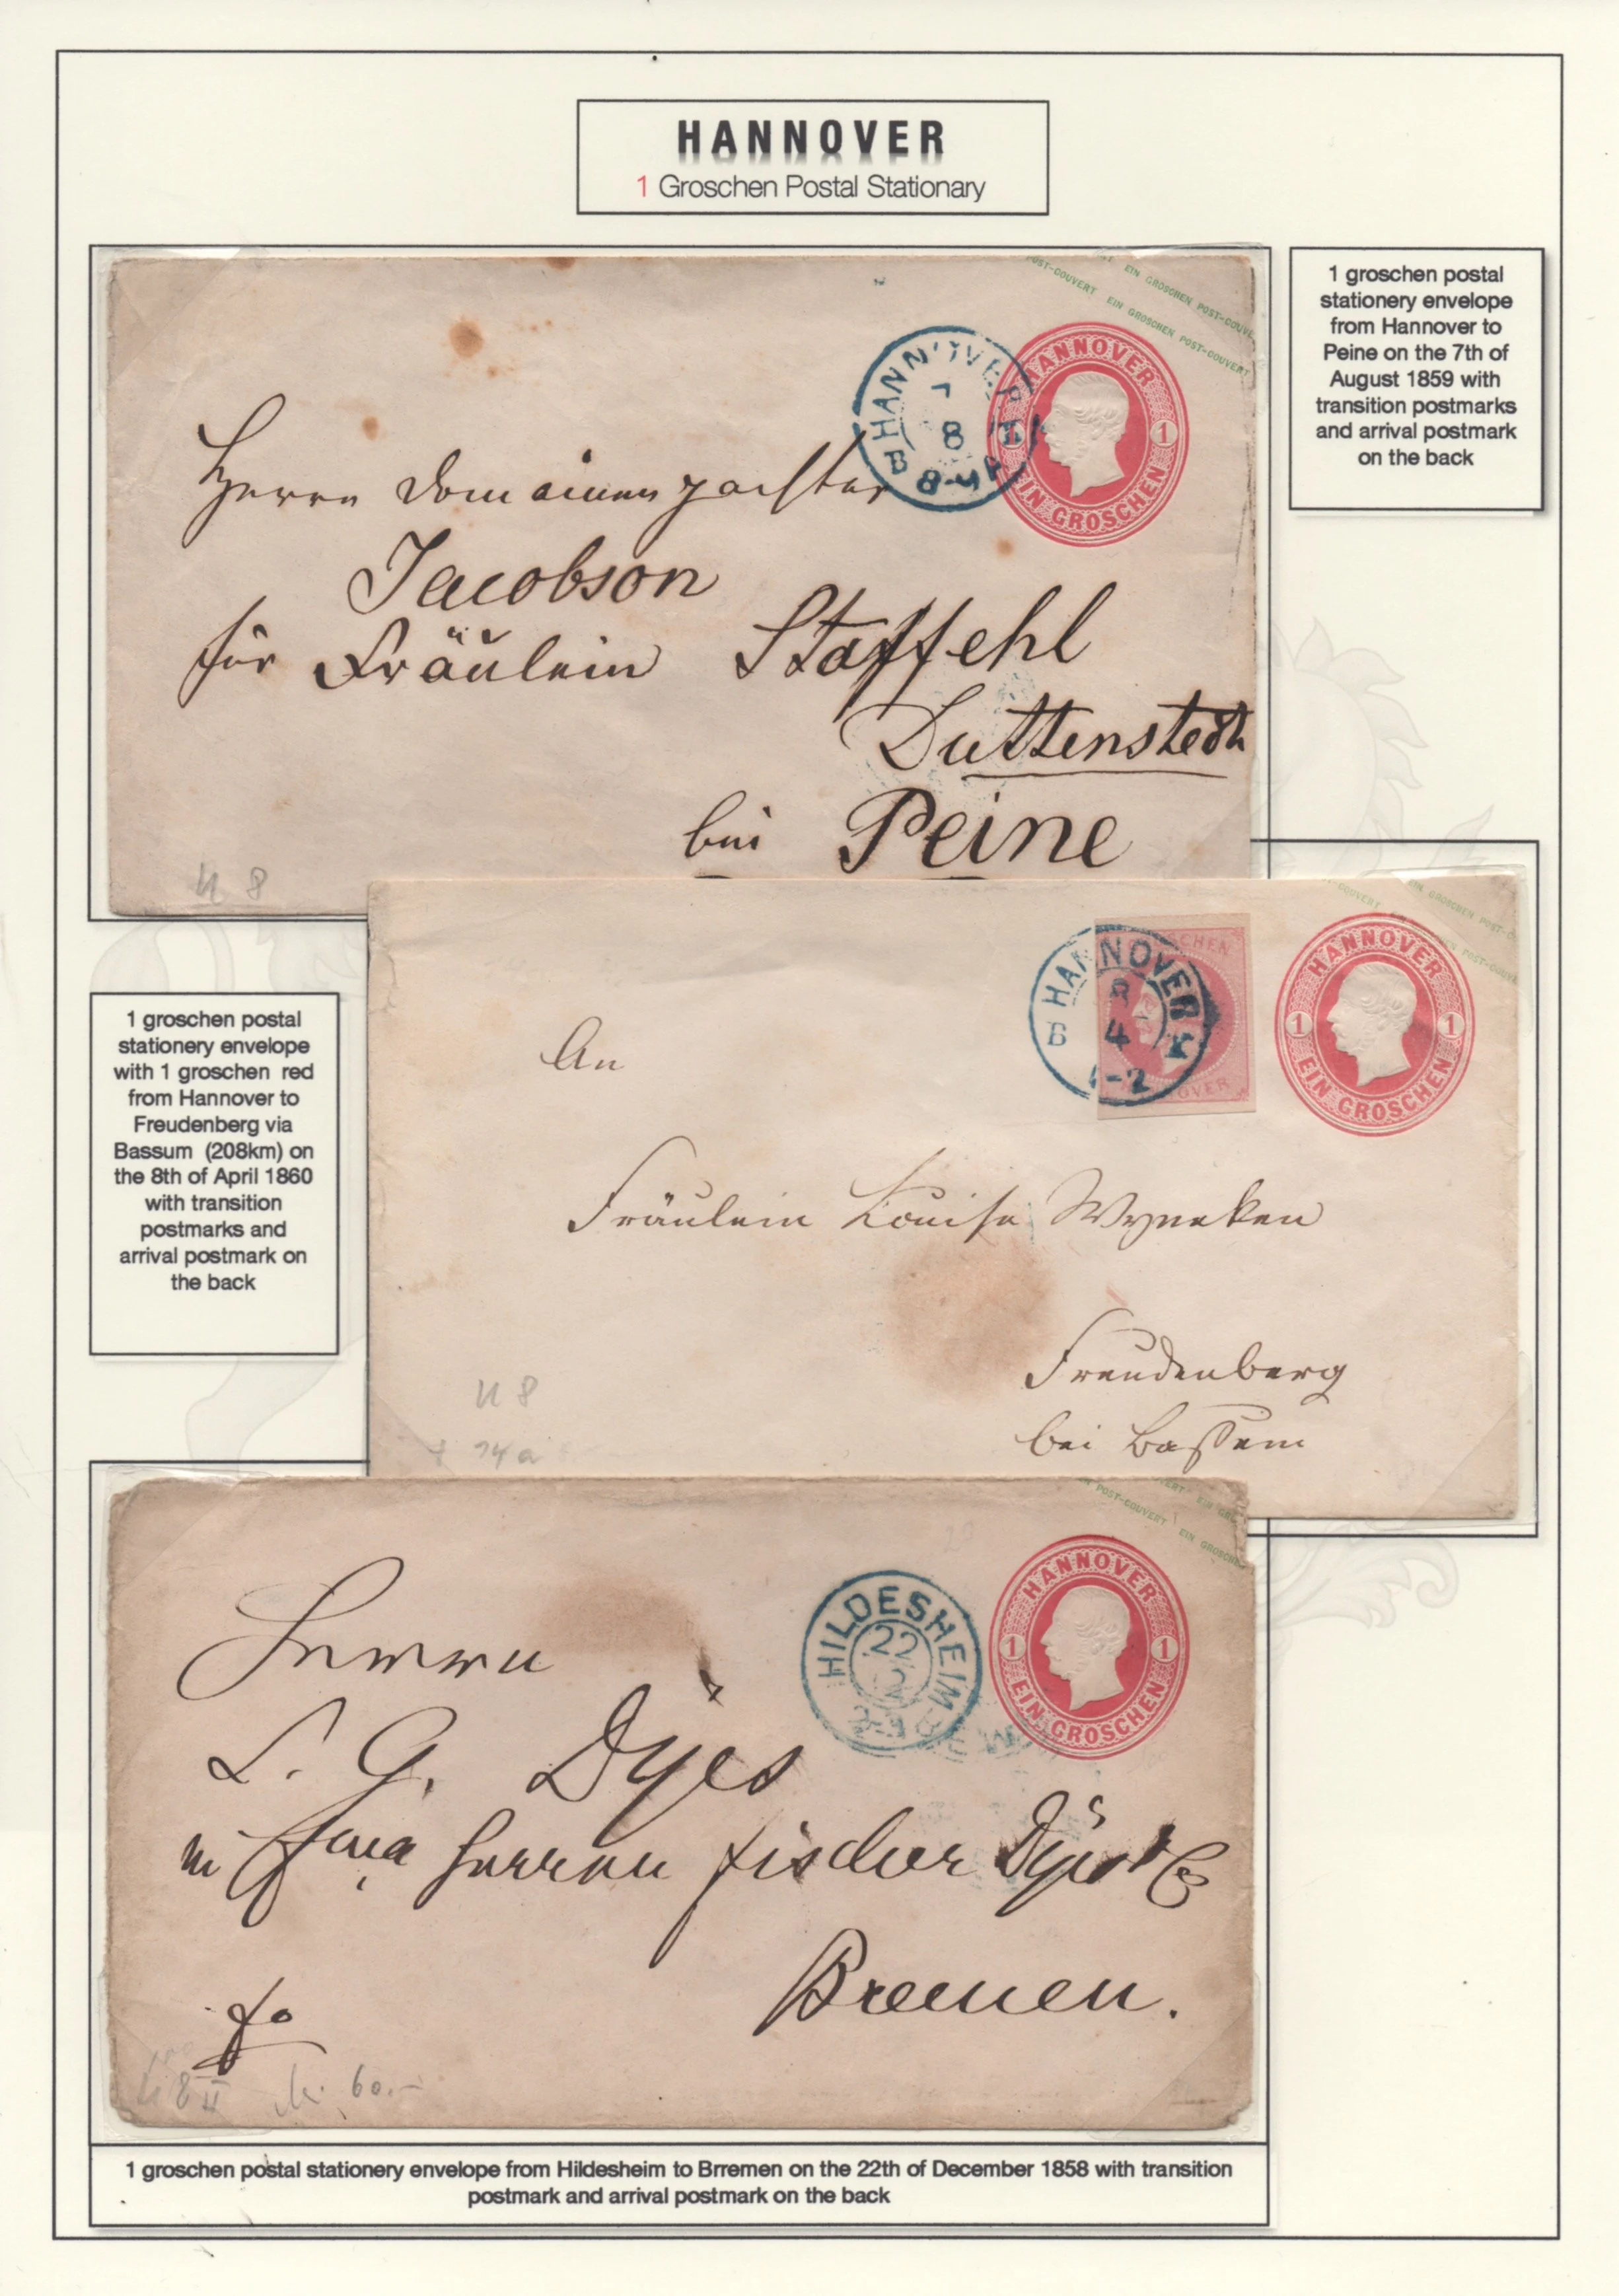 HANNOVER
1 Groschen Postal Stationary
1 groschen postal
stationery envelope
from Hannover to
Peine on the 7th of
August 1859 with
transition postmarks
and arrival postmark
on the back
POST-COUVERT EIN GROSCHEN POST-COUVERT
EIN GROSCHEN POST-COUVE
HANNOVER
7
8
B 8-9
HANNOVER
1 1
EIN GROSCHEN
Herrn Domainenpachter
Jacobson
für Fräulein Staffehl
Duttenstedt
bei Peine
U 8
1 groschen postal
stationery envelope
with 1 groschen red
from Hannover to
Freudenberg via
Bassum (208km) on
the 8th of April 1860
with transition
postmarks and
arrival postmark on
the back
EIN GROSCHEN POST-C
POST-COUVE
HANNOVER
8
4
B 1-2
HANNOVER
1 1
EIN GROSCHEN
An
Fräulein Louise Wyneken
Freudenberg
bei Bassum
U 8
14 a
POST-COUVERT EIN GROSCHEN
HILDESHEIM
22
12
HANNOVER
1 1
EIN GROSCHEN
Herrn
L. G. Dyes
Herren Fischer Dyes & Co
Bremen.
fo
U 8 II 60.-
1 groschen postal stationery envelope from Hildesheim to Brremen on the 22th of December 1858 with transition
postmark and arrival postmark on the back